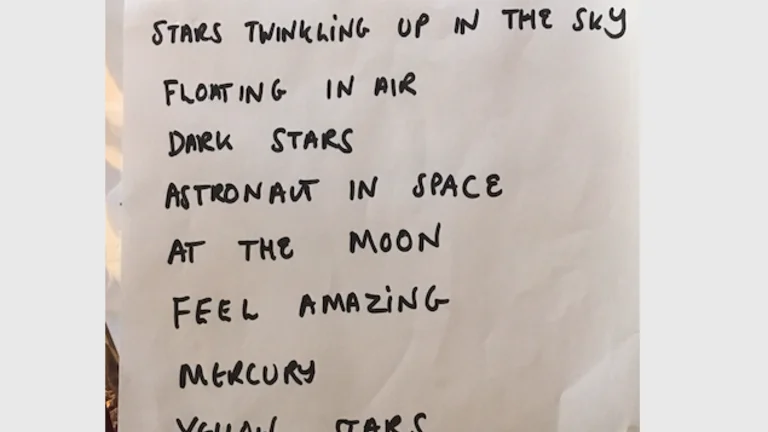 STARS TWINKLING UP IN THE SKY
FLOATING IN AIR
DARK STARS
ASTRONAUT IN SPACE
AT THE MOON
FEEL AMAZING
MERCURY
STARS